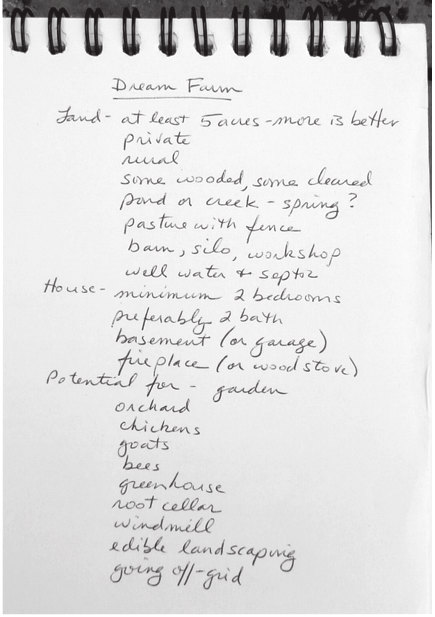 Dream Farm
Land - at least 5 acres - more is better
private
rural
some wooded, some cleared
pond or creek - spring?
pasture with fence
barn, silo, workshop
well water + septic
House - minimum 2 bedrooms
preferably 2 bath
basement (or garage)
fireplace (or wood stove)
Potential for - garden
orchard
chickens
goats
bees
greenhouse
root cellar
windmill
edible landscaping
going off-grid